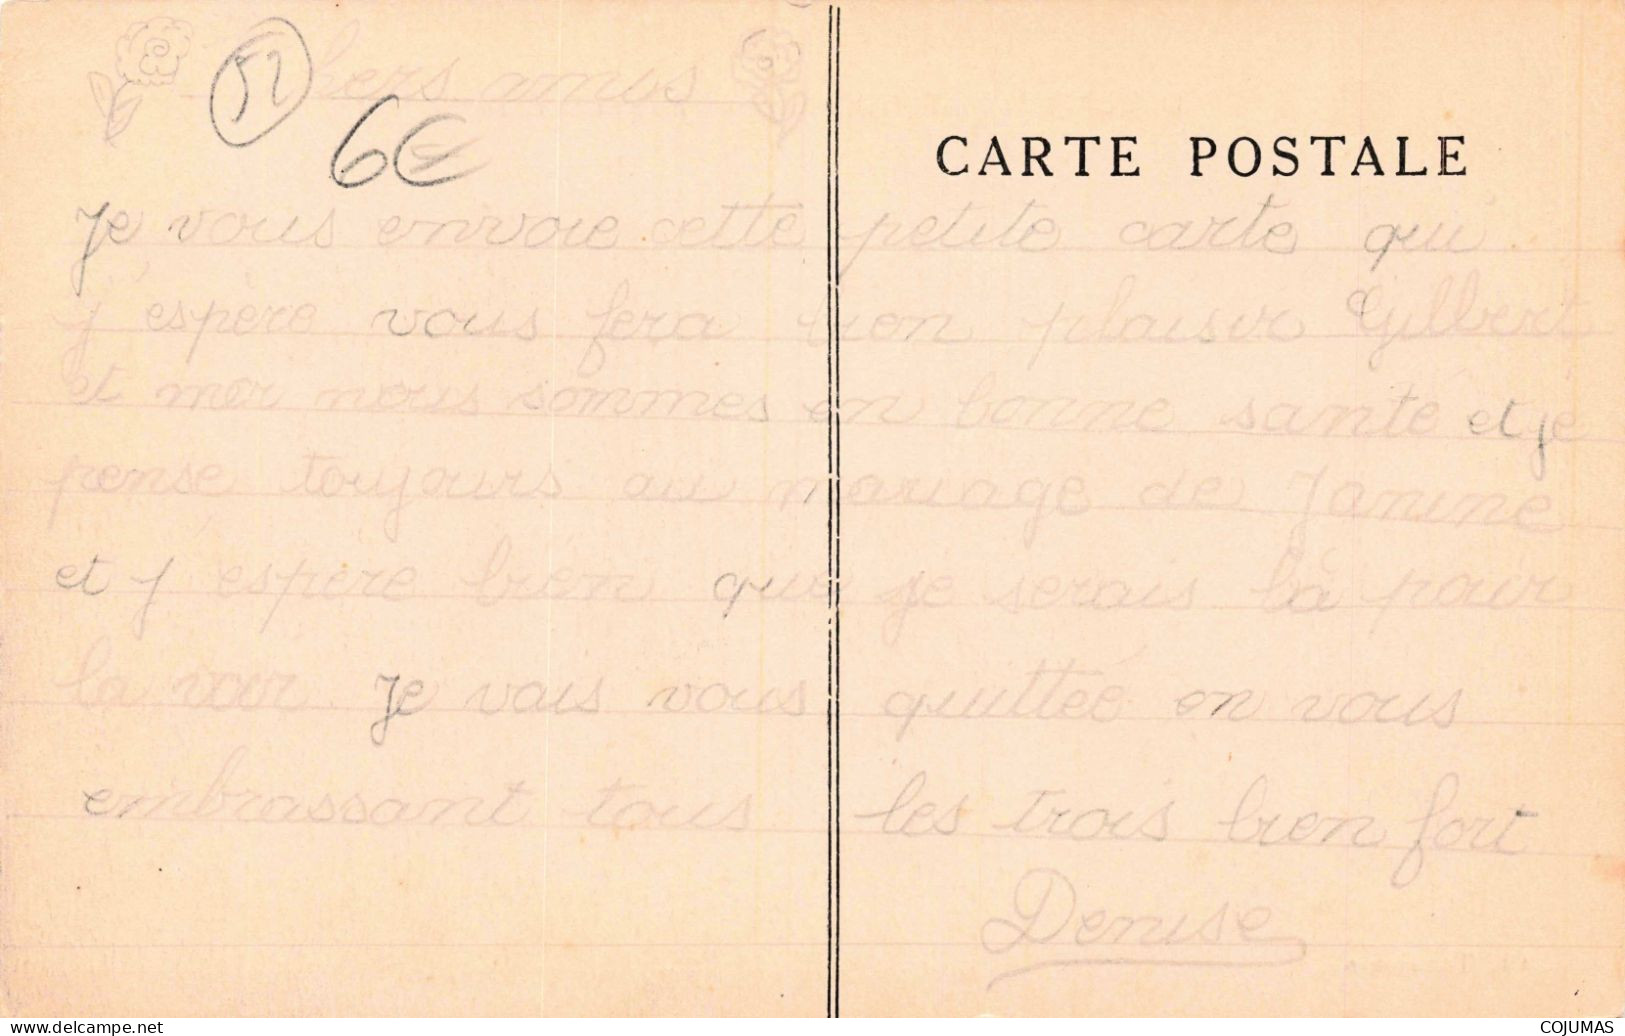 Chers amis
52
6€
CARTE POSTALE
Je vous envoie cette petite carte qui
j'espère vous fera bien plaisir Gilbert
et moi nous sommes en bonne santé et je
pense toujours au mariage de Janine
et j'espère bien que je serais là pour
la voir Je vais vous quittée en vous
embrassant tous les trois bien fort
Denise
www.delcampe.net
COJUMAS